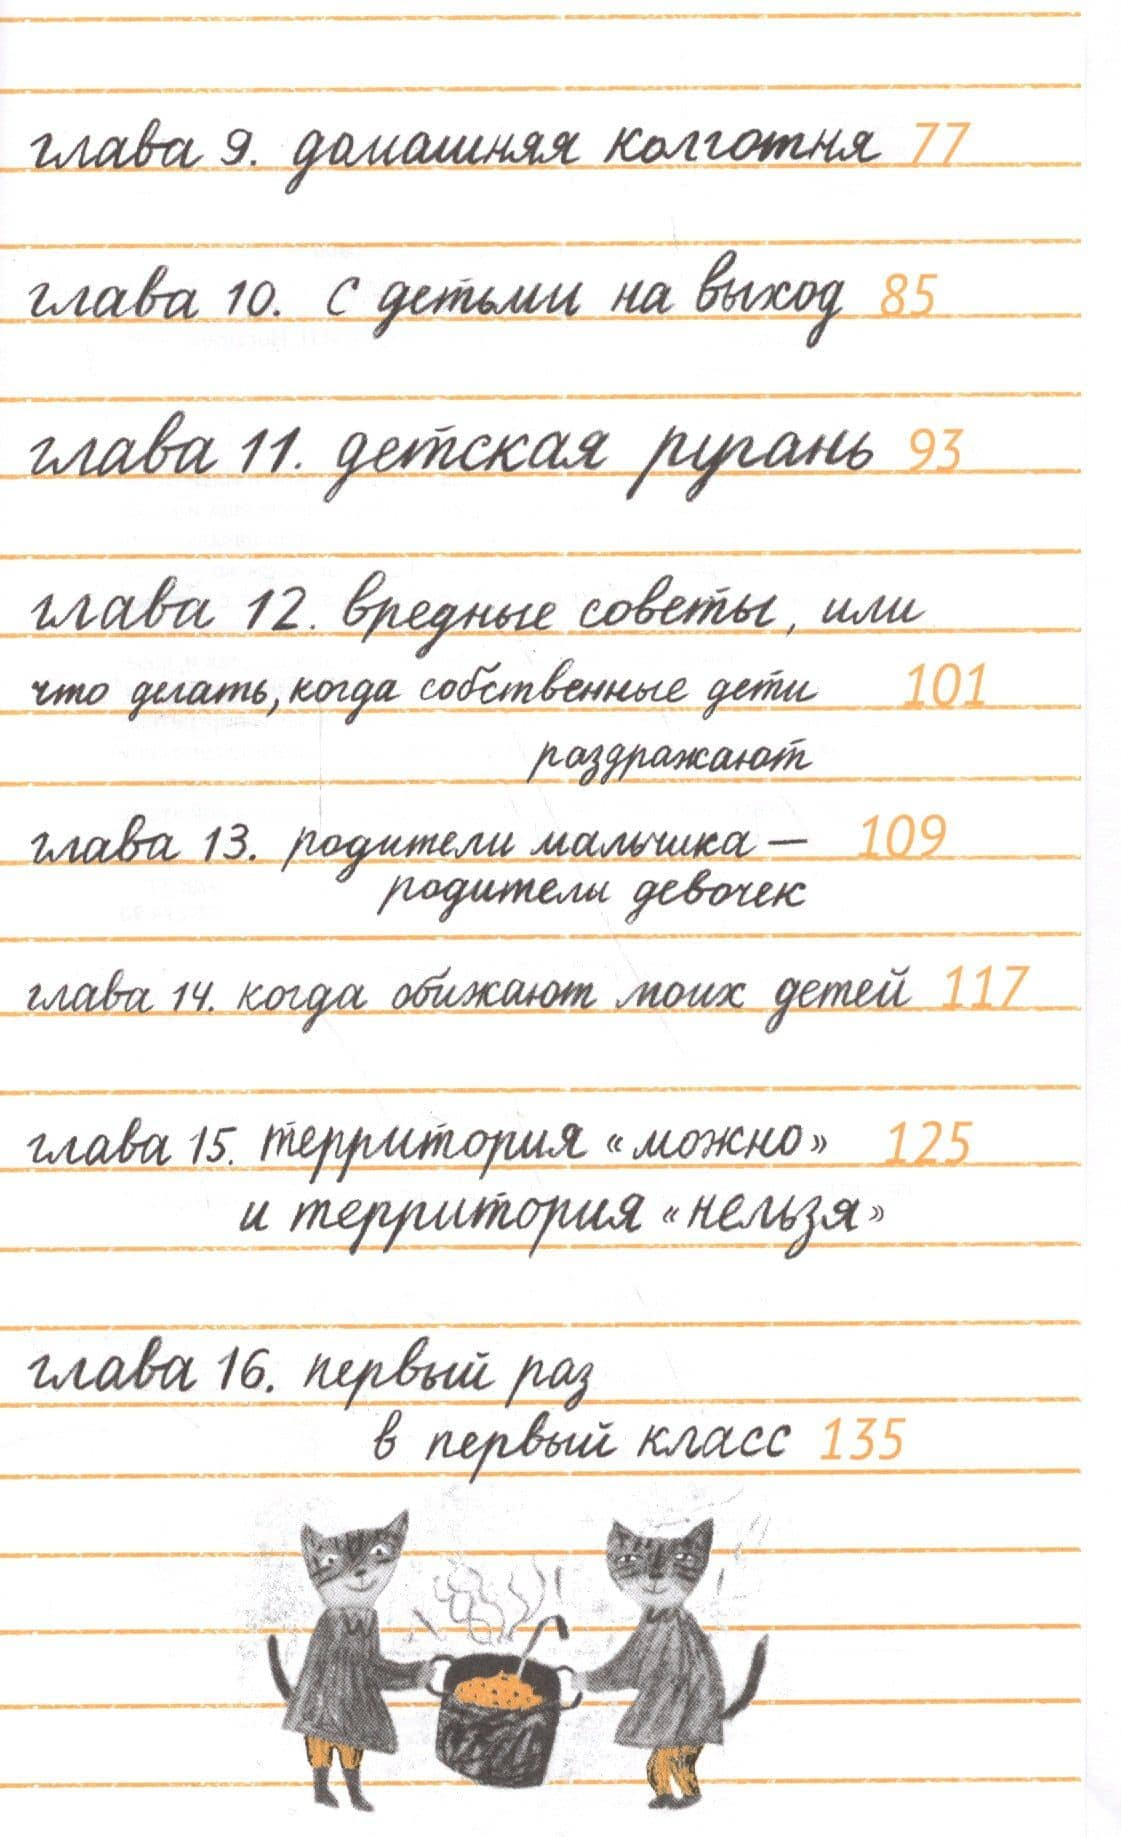 глава 9. домашняя колготня 77
глава 10. с детьми на выход 85
глава 11. детская ругань 93
глава 12. вредные советы, или
что делать, когда собственные дети 101
раздражают
глава 13. родители мальчика — 109
родители девочек
глава 14. когда обижают моих детей 117
глава 15. территория «можно» 125
и территория «нельзя»
глава 16. первый раз
в первый класс 135